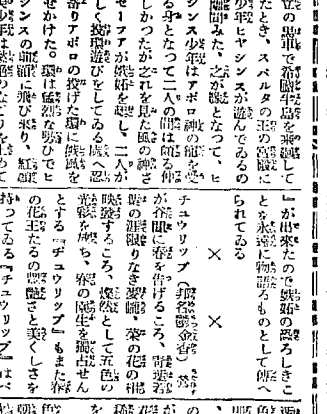 立の黒車で希臘半島を乗廻して
たとき、スパルタの王の宮殿に
少年ヒヤシンスが遊んでゐるの
間みた、之が縁となつて、ヒ
シンス少年はアポロ神の寵を受
る身となつて二人の間は頗る仲
しかつたが之れを見た風の神さ
セーフアが嫉妬を起し、二人が
しく投環遊びをしてゐる處へ忍
寄りアポロの投げた環に微風を
せかけた。環は猛烈な勢ひでヒ
シンスの前額に飛び来り、紅顔
』が出来たので嫉妬の恐ろしきこ
とを永遠に物語るものとして傳へ
られてゐる
× ×
チユウリツプ(邦名欝金香) 鶯
が谷間に春を告げるころ、青
葉の涯限りなき麥畑、菜の花の相
映發するころ、燦然として五色の
光彩を放ち、春の園生を獨占せん
とする『チユウリツプ』もまた春
の花王たるの艶さと美くしさを
持つてゐる『チユウリツプ』はペ